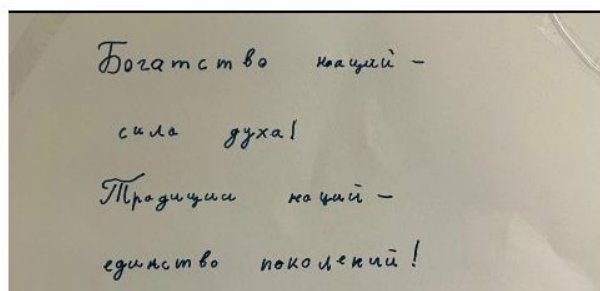 Богатство наций –
сила духа!
Традиции наций –
единство поколений!